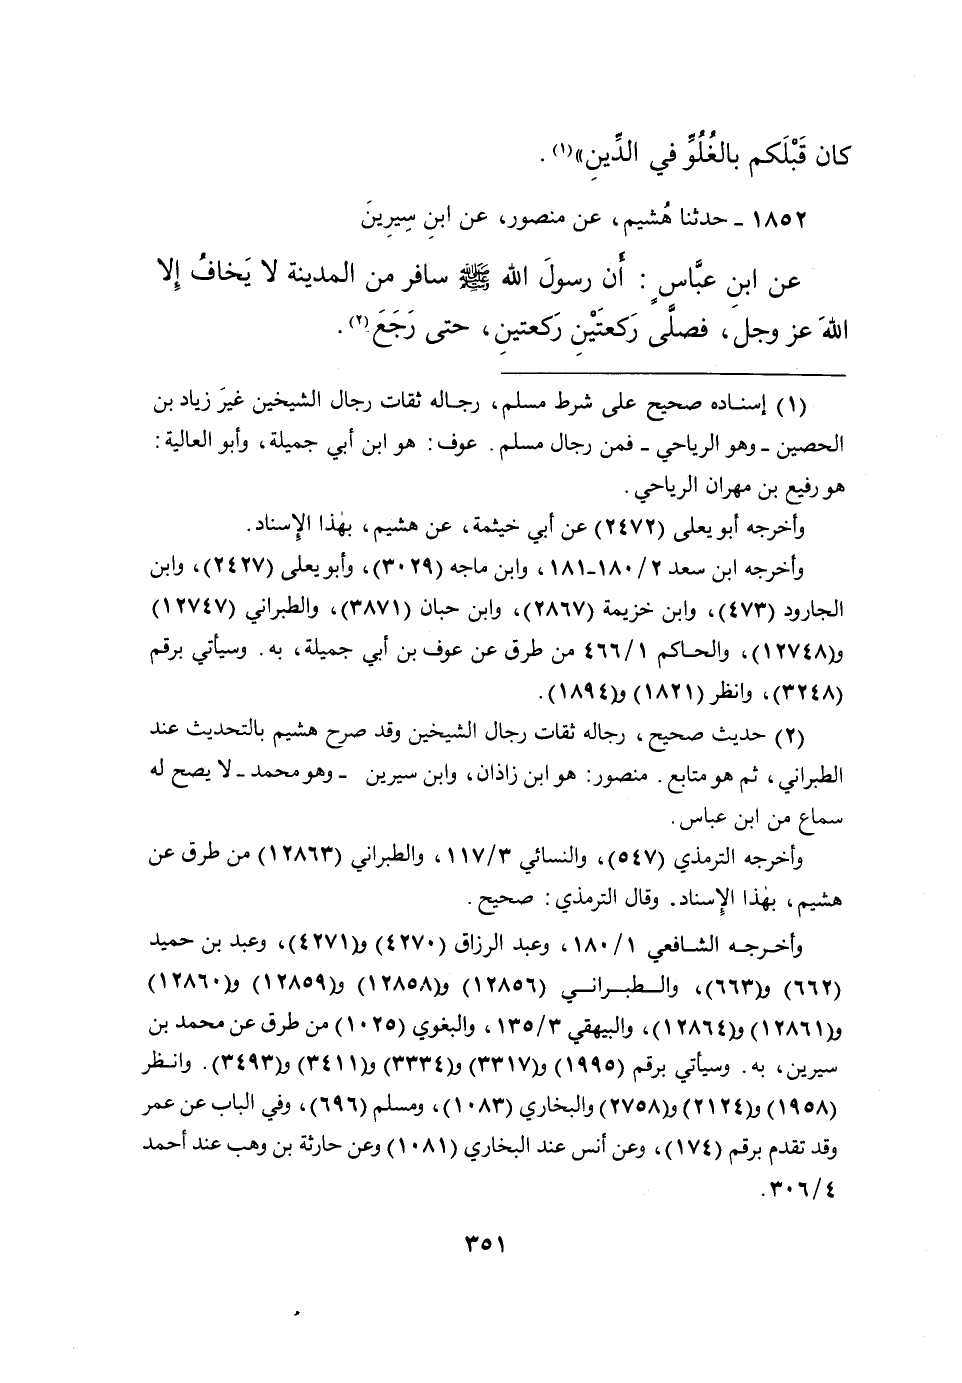 كان قَبْلَكم بالغُلُوِّ في الدِّينِ»(١) .
١٨٥٢ ـ حدثنا هُشيم، عن منصور، عن ابنِ سِيرِينَ
عن ابنِ عبَّاسٍ : أَن رسولَ الله ﷺ سافر من المدينة لا يَخافُ إلا
اللهَ عز وجل، فصلَّى رَكعتَيْنِ رَكعتينِ، حتى رَجَعَ(٢).
(١) إسناده صحيح على شرط مسلم، رجاله ثقات رجال الشيخين غيرَ زياد بن
الحصين ـ وهو الرياحي ـ فمن رجال مسلم. عوف: هو ابن أبي جميلة، وأبو العالية:
هو رفيع بن مهران الرياحي.
وأخرجه أبو يعلى (٢٤٧٢) عن أبي خيثمة، عن هشيم، بهٰذا الإسناد.
وأخرجه ابن سعد ١٨٠/٢-١٨١، وابن ماجه (٣٠٢٩)، وأبو يعلى (٢٤٢٧)، وابن
الجارود (٤٧٣)، وابن خزيمة (٢٨٦٧)، وابن حبان (٣٨٧١)، والطبراني (١٢٧٤٧)
و(١٢٧٤٨)، والحاكم ٤٦٦/١ من طرق عن عوف بن أبي جميلة، به. وسيأتي برقم
(٣٢٤٨)، وانظر (١٨٢١) و(١٨٩٤).
(٢) حديث صحيح، رجاله ثقات رجال الشيخين وقد صرح هشيم بالتحديث عند
الطبراني، ثم هو متابع. منصور: هو ابن زاذان، وابن سيرين ـ وهو محمد ـ لا يصح له
سماع من ابن عباس.
وأخرجه الترمذي (٥٤٧)، والنسائي ١١٧/٣، والطبراني (١٢٨٦٣) من طرق عن
هشيم، بهٰذا الإسناد. وقال الترمذي: صحيح.
وأخرجه الشافعي ١٨٠/١، وعبد الرزاق (٤٢٧٠) و(٤٢٧١)، وعبد بن حميد
(٦٦٢) و(٦٦٣)، والطبراني (١٢٨٥٦) و(١٢٨٥٨) و(١٢٨٥٩) و(١٢٨٦٠)
و(١٢٨٦١) و(١٢٨٦٤)، والبيهقي ١٣٥/٣، والبغوي (١٠٢٥) من طرق عن محمد بن
سيرين، به. وسيأتي برقم (١٩٩٥) و(٣٣١٧) و(٣٣٣٤) و(٣٤١١) و(٣٤٩٣). وانظر
(١٩٥٨) و(٢١٢٤) و(٢٧٥٨) والبخاري (١٠٨٣)، ومسلم (٦٩٦)، وفي الباب عن عمر
وقد تقدم برقم (١٧٤)، وعن أنس عند البخاري (١٠٨١) وعن حارثة بن وهب عند أحمد
٣٠٦/٤.
٣٥١